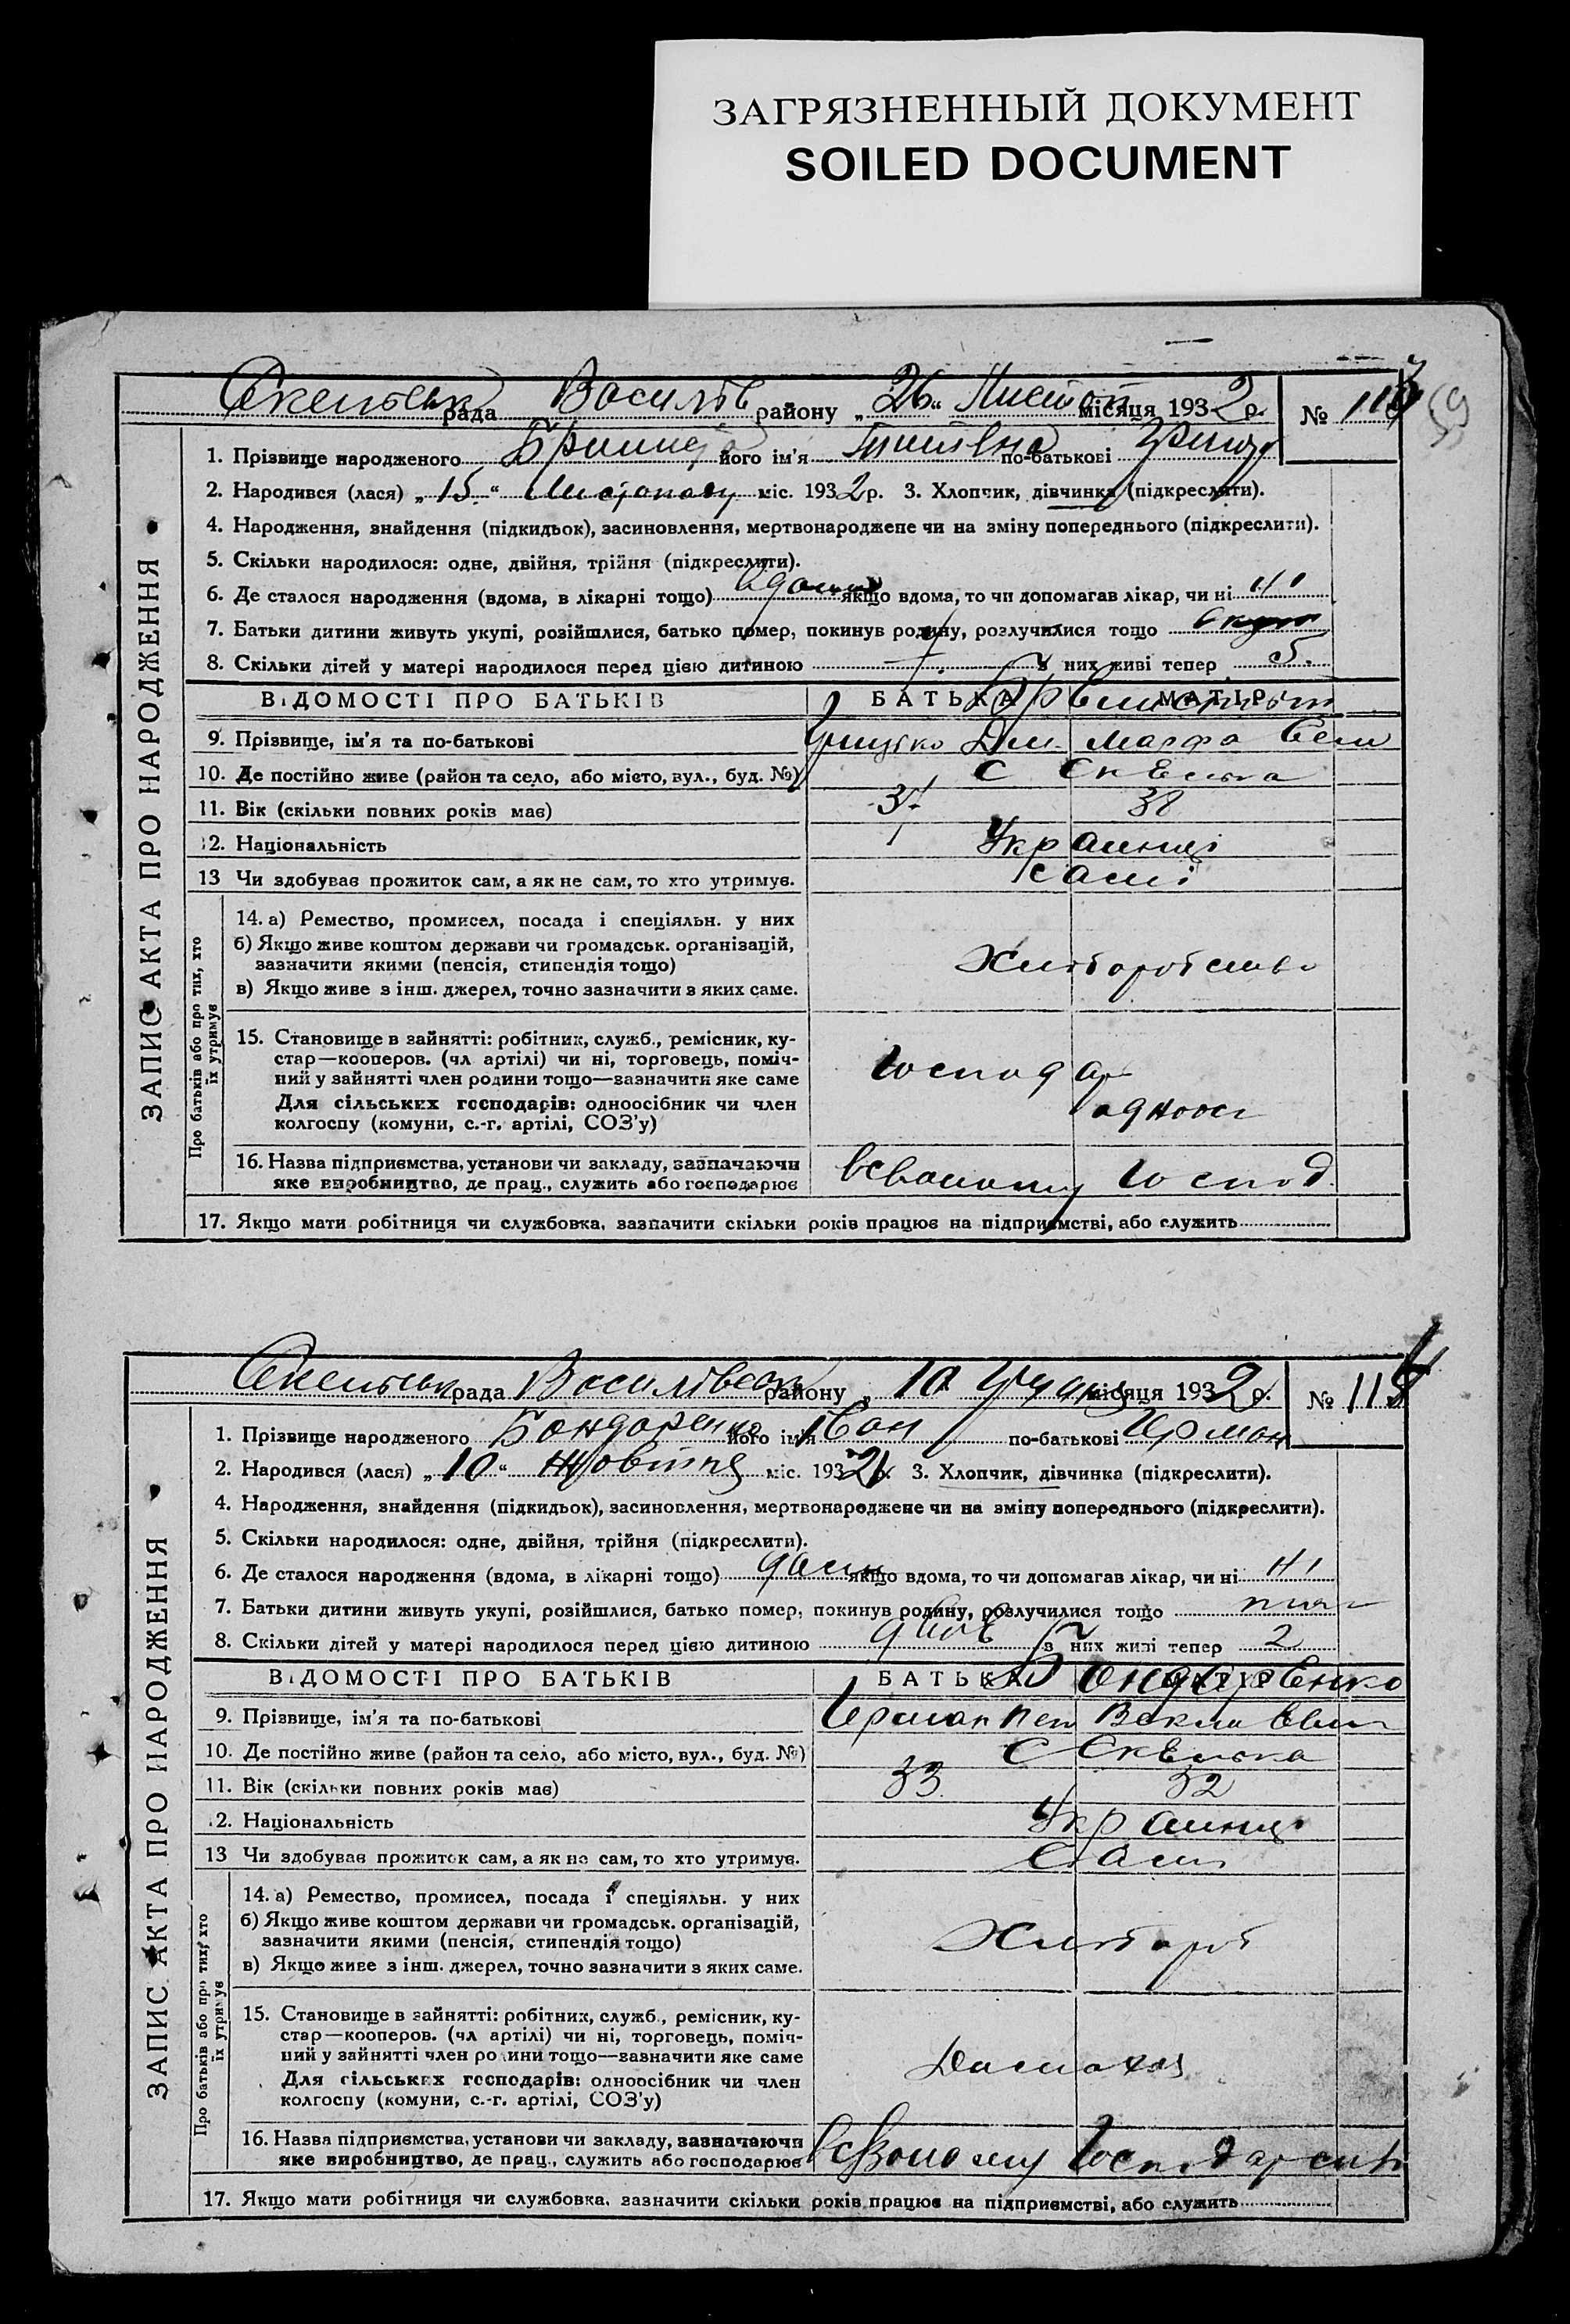 ЗАГРЯЗНЕННЫЙ ДОКУМЕНТ
SOILED DOCUMENT
59
Скельськ рада Василів району „26“ Листоп місяця 1932 р. №
1. Прізвище народженого його ім'я по-батькові Грицьк
2. Народився (лася) „15“ Листопаду міс. 1932 р. 3. Хлопчик, дівчинка (підкреслити).
4. Народження, знайдення (підкидьок), засиновлення, мертвонароджене чи на зміну попереднього (підкреслити).
5. Скільки народилося: одне, двійня, трійня (підкреслити).
6. Де сталося народження (вдома, в лікарні тощо) вдома якщо вдома, то чи допомагав лікар, чи ні ні
7. Батьки дитини живуть укупі, розійшлися, батько помер, покинув родину, розлучилися тощо вкупі
8. Скільки дітей у матері народилося перед цією дитиною 7. з них живі тепер 5.
ВІДОМОСТІ ПРО БАТЬКІВ БАТЬКА МАТІР
9. Прізвище, ім'я та по-батькові Грицько Дм. Марфа Сем
10. Де постійно живе (район та село, або місто, вул., буд. №) С Скелька
11. Вік (скільки повних років має) 37 38
12. Національність Українці
13 Чи здобуває прожиток сам, а як не сам, то хто утримує. самі
ЗАПИС АКТА ПРО НАРОДЖЕННЯ
Про батьків або про тих, хто їх утримує
14. а) Ремество, промисел, посада і спеціяльн. у них
б) Якщо живе коштом держави чи громадськ. організацій,
зазначити якими (пенсія, стипендія тощо) Хліборобство
в) Якщо живе з інш. джерел, точно зазначити з яких саме.
15. Становище в зайнятті: робітник, служб., ремісник, ку-
стар—кооперов. (чл артілі) чи ні, торговець, поміч-
ний у зайнятті член родини тощо—зазначити яке саме Господар
Для сільських господарів: одноосібник чи член одноос
колгоспу (комуни, с.-г. артілі, СОЗ'у)
16. Назва підприємства, установи чи закладу, зазначаючи
яке виробництво, де прац., служить або господарює всвоєму Господ.
17. Якщо мати робітниця чи службовка, зазначити скільки років працює на підприємстві, або служить
Скельськ рада Василівськ району „10 Грудня місяця 1932 р. №
1. Прізвище народженого Бондаренко його ім'я Іван по-батькові Герман
2. Народився (лася) „10“ Жовтня міс. 1932 р. 3. Хлопчик, дівчинка (підкреслити).
4. Народження, знайдення (підкидьок), засиновлення, мертвонароджене чи на зміну попереднього (підкреслити).
5. Скільки народилося: одне, двійня, трійня (підкреслити).
6. Де сталося народження (вдома, в лікарні тощо) дома якщо вдома, то чи допомагав лікар, чи ні ні
7. Батьки дитини живуть укупі, розійшлися, батько помер, покинув родину, розлучилися тощо
8. Скільки дітей у матері народилося перед цією дитиною двоє з них живі тепер 2
ВІДОМОСТІ ПРО БАТЬКІВ БАТЬКА МАТІР Бондаренко
9. Прізвище, ім'я та по-батькові Герман Пет Векла
10. Де постійно живе (район та село, або місто, вул., буд. №) С Скелька
11. Вік (скільки повних років має) 33 32
12. Національність Українці
13 Чи здобуває прожиток сам, а як не сам, то хто утримує. Самі
ЗАПИС АКТА ПРО НАРОДЖЕННЯ
Про батьків або про тих, хто їх утримує
14. а) Ремество, промисел, посада і спеціяльн. у них
б) Якщо живе коштом держави чи громадськ. організацій,
зазначити якими (пенсія, стипендія тощо) Хлібороб
в) Якщо живе з інш. джерел, точно зазначити з яких саме.
15. Становище в зайнятті: робітник, служб., ремісник, ку-
стар—кооперов. (чл артілі) чи ні, торговець, поміч-
ний у зайнятті член родини тощо—зазначити яке саме
Для сільських господарів: одноосібник чи член
колгоспу (комуни, с.-г. артілі, СОЗ'у)
16. Назва підприємства, установи чи закладу, зазначаючи
яке виробництво, де прац., служить або господарює всвоєму Господарстві
17. Якщо мати робітниця чи службовка, зазначити скільки років працює на підприємстві, або служить